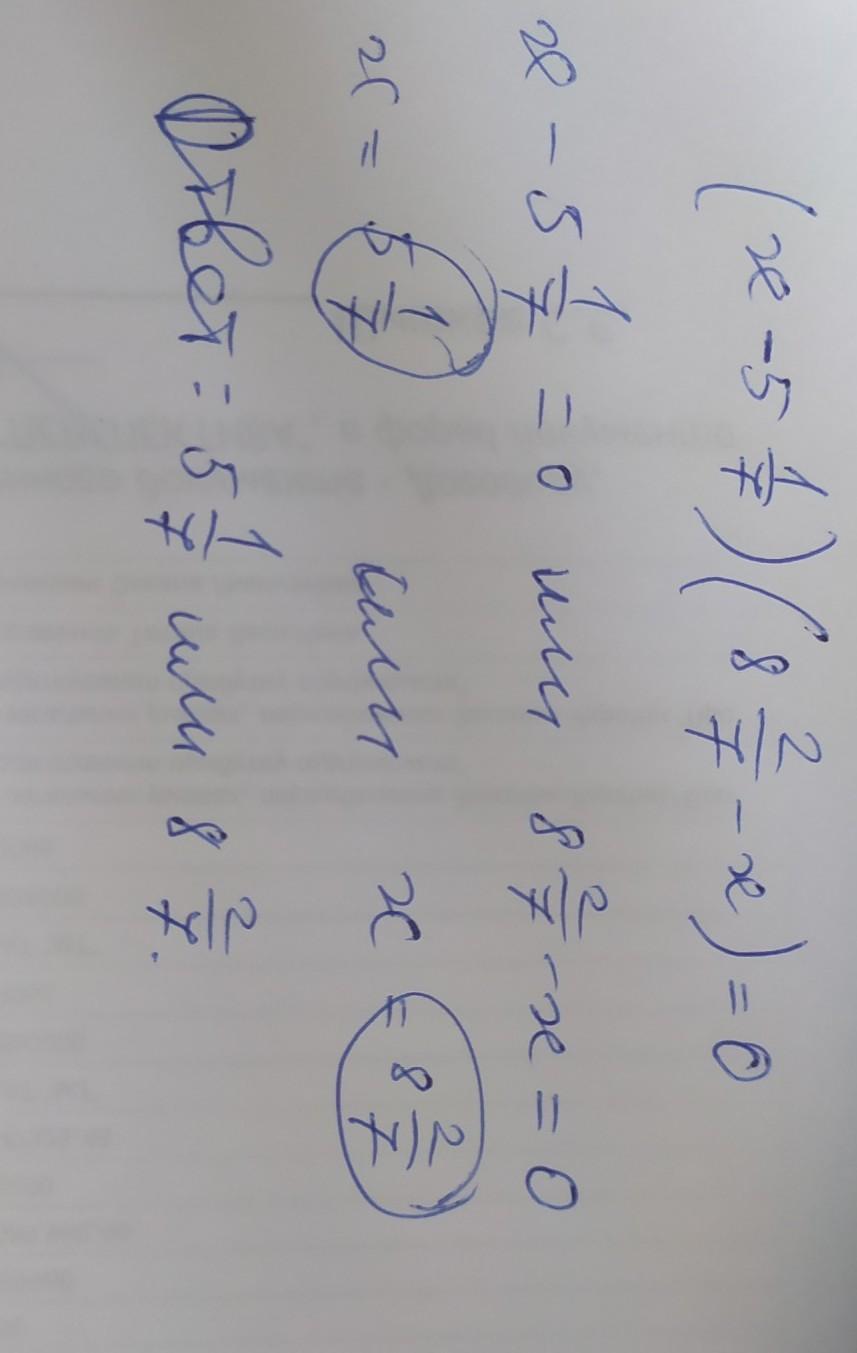 (x - 5 1/7)(8 2/7 - x) = 0
x - 5 1/7 = 0 или 8 2/7 - x = 0
x = 5 1/7 или x = 8 2/7
Ответ: 5 1/7 или 8 2/7.